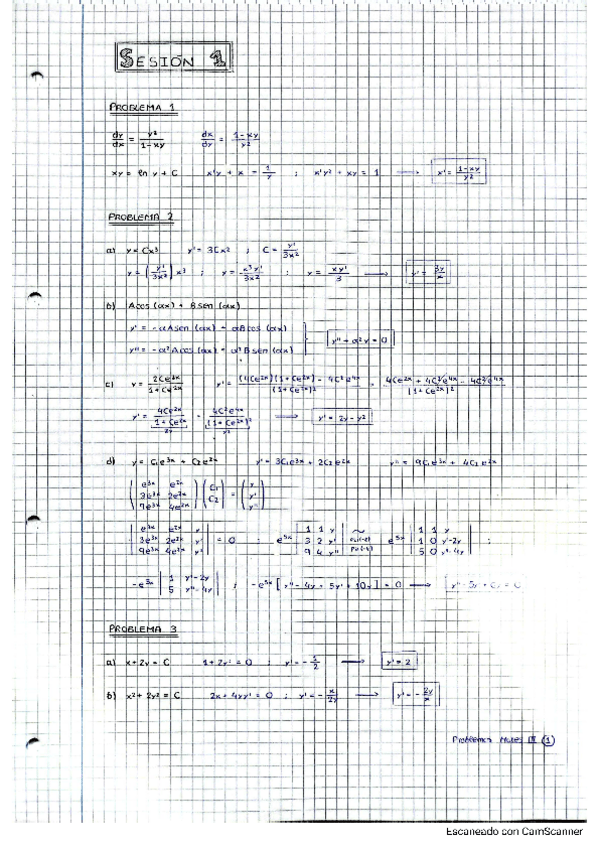 SESIÓN 1
PROBLEMA 1
dy/dx = y²/(1-xy)   dx/dy = (1-xy)/y²
xy = ln y + C   x'y + x = 1/y ; x'y² + xy = 1 → x' = (1-xy)/y²
PROBLEMA 2
a) y = Cx³   y' = 3Cx² ; C = y'/3x²
y = (y'/3x²) x³ ; y = x³y'/3x² ; y = xy'/3 → y' = 3y/x
b) Acos(αx) + Bsen(αx)
y' = -αAsen(αx) + αBcos(αx)
y'' = -α²Acos(αx) - α²Bsen(αx)   y'' + α²y = 0
c) y = 2Ce^2x/(1+Ce^2x)   y' = ((4Ce^2x)(1+Ce^2x) - 4C²e^4x)/(1+Ce^2x)² = (4Ce^2x + 4C²e^4x - 4C²e^4x)/(1+Ce^2x)²
y' = 4Ce^2x/(1+Ce^2x) - 4C²e^4x/(1+Ce^2x)² → y' = 2y - y²
2y   y²
d) y = C₁e^3x + C₂e^2x   y' = 3C₁e^3x + 2C₂e^2x   y'' = 9C₁e^3x + 4C₂e^2x
( e^3x e^2x ) ( C₁ ) = ( y )
( 3e^3x 2e^2x ) ( C₂ ) ( y' )
( 9e^3x 4e^2x ) ( y'' )
| e^3x e^2x y | | 1 1 y | ~ | 1 1 y |
| 3e^3x 2e^2x y' | = 0 ; e^5x | 3 2 y' | e^5x | 1 0 y'-2y | ;
| 9e^3x 4e^2x y'' | | 9 4 y'' | | 5 0 y''-4y |
-e^5x | 1 y'-2y | ; -e^5x [ y'' - 4y - 5y' + 10y ] = 0 →
| 5 y''-4y |
PROBLEMA 3
a) x + 2y = C   1 + 2y' = 0 ; y' = -1/2 → y' = 2
b) x² + 2y² = C   2x + 4yy' = 0 ; y' = -x/2y → y' = - 2y/x
Problemas Mates III (1)
Escaneado con CamScanner